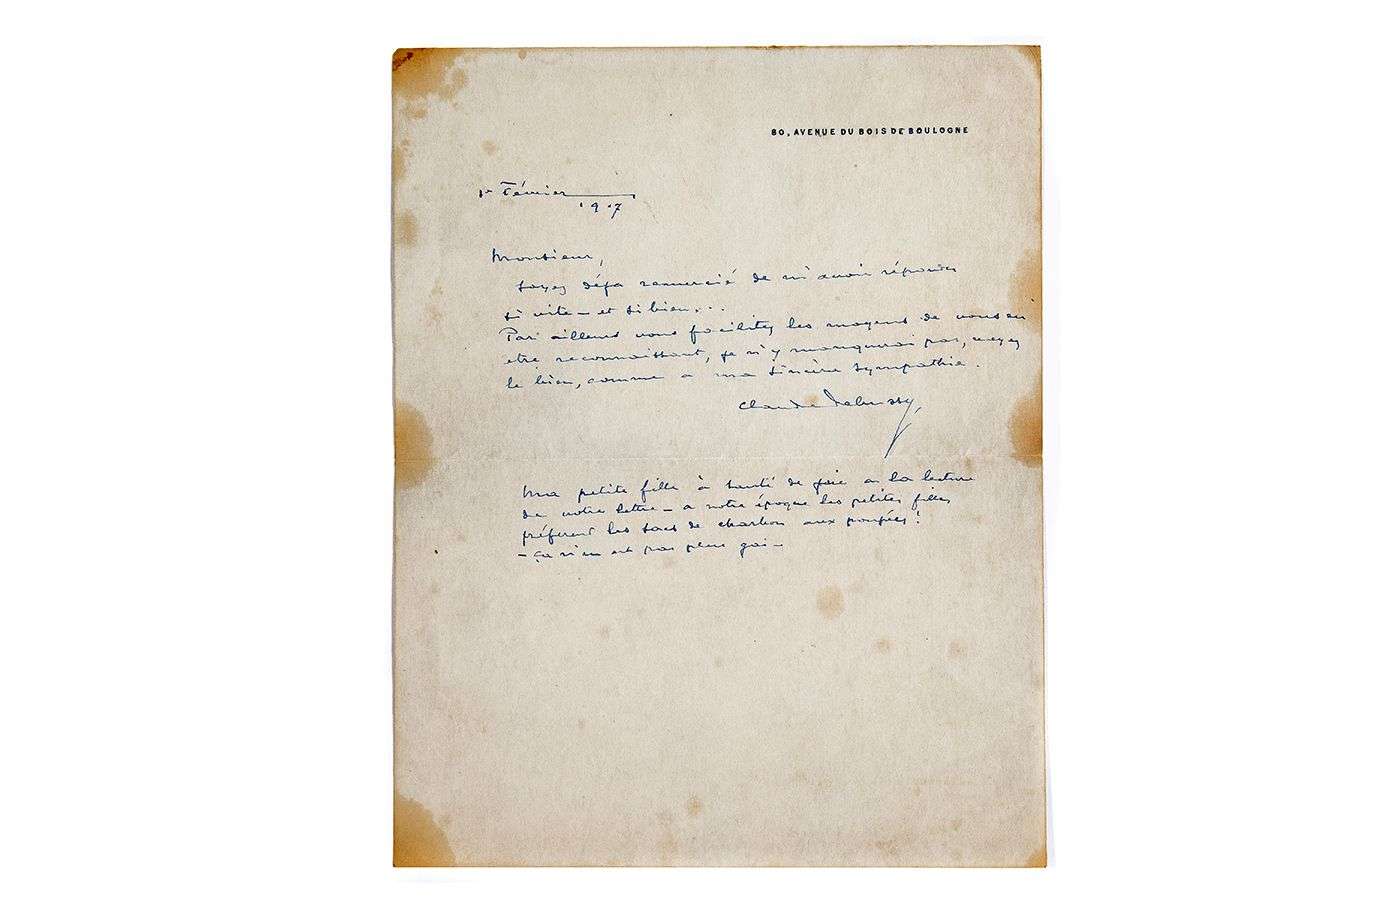 80, AVENUE DU BOIS DE BOULOGNE
1er Février
1917
Monsieur,
Soyez déjà remercié de m'avoir répondu
si vite – et si bien...
Par ailleurs vous facilitez les moyens de vous en
etre reconnaissant, je n'y manquerai pas, croyez
le bien, comme a ma sincère sympathie.
Claude Debussy
Ma petite fille à sauté de joie a la lecture
de votre lettre – a notre époque les petites filles
préfèrent les sacs de charbon aux poupées!
– Ça n'en est pas plus gai –